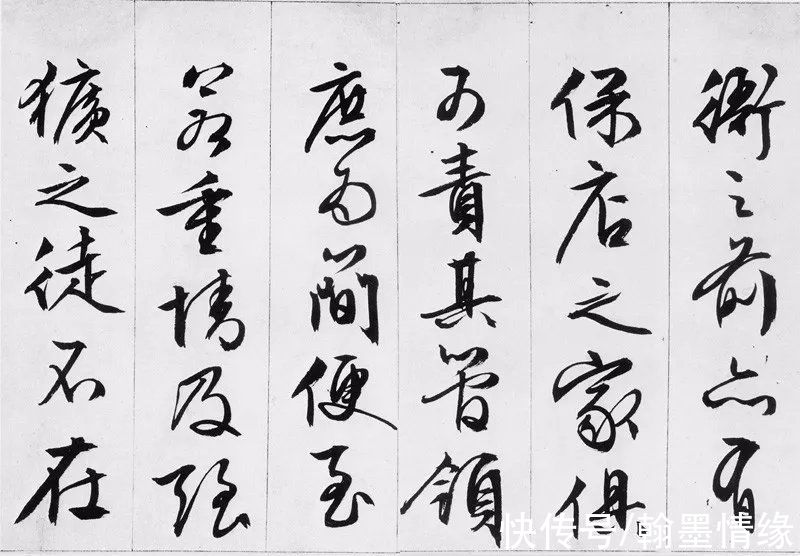 衙之前亦有
保店之家俱
可責其管領
庶為簡便至
若重情及強
獷之徒不在
快传号/翰墨情缘